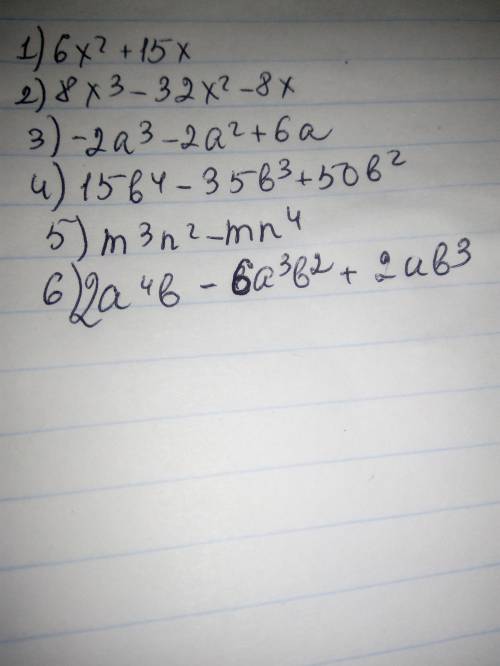 1) 6x² + 15x
2) 8x³ - 32x² - 8x
3) -2a³ - 2a² + 6a
4) 15в⁴ - 35в³ + 50в²
5) m³n² - mn⁴
6) 2a⁴в - 6a³в² + 2aв³